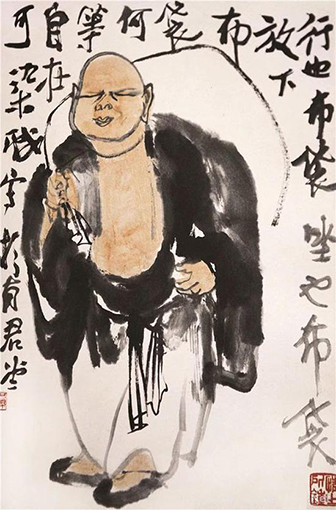 行也布袋坐也布袋
放下
布
袋
何
等
自在
可染戏写于有君堂